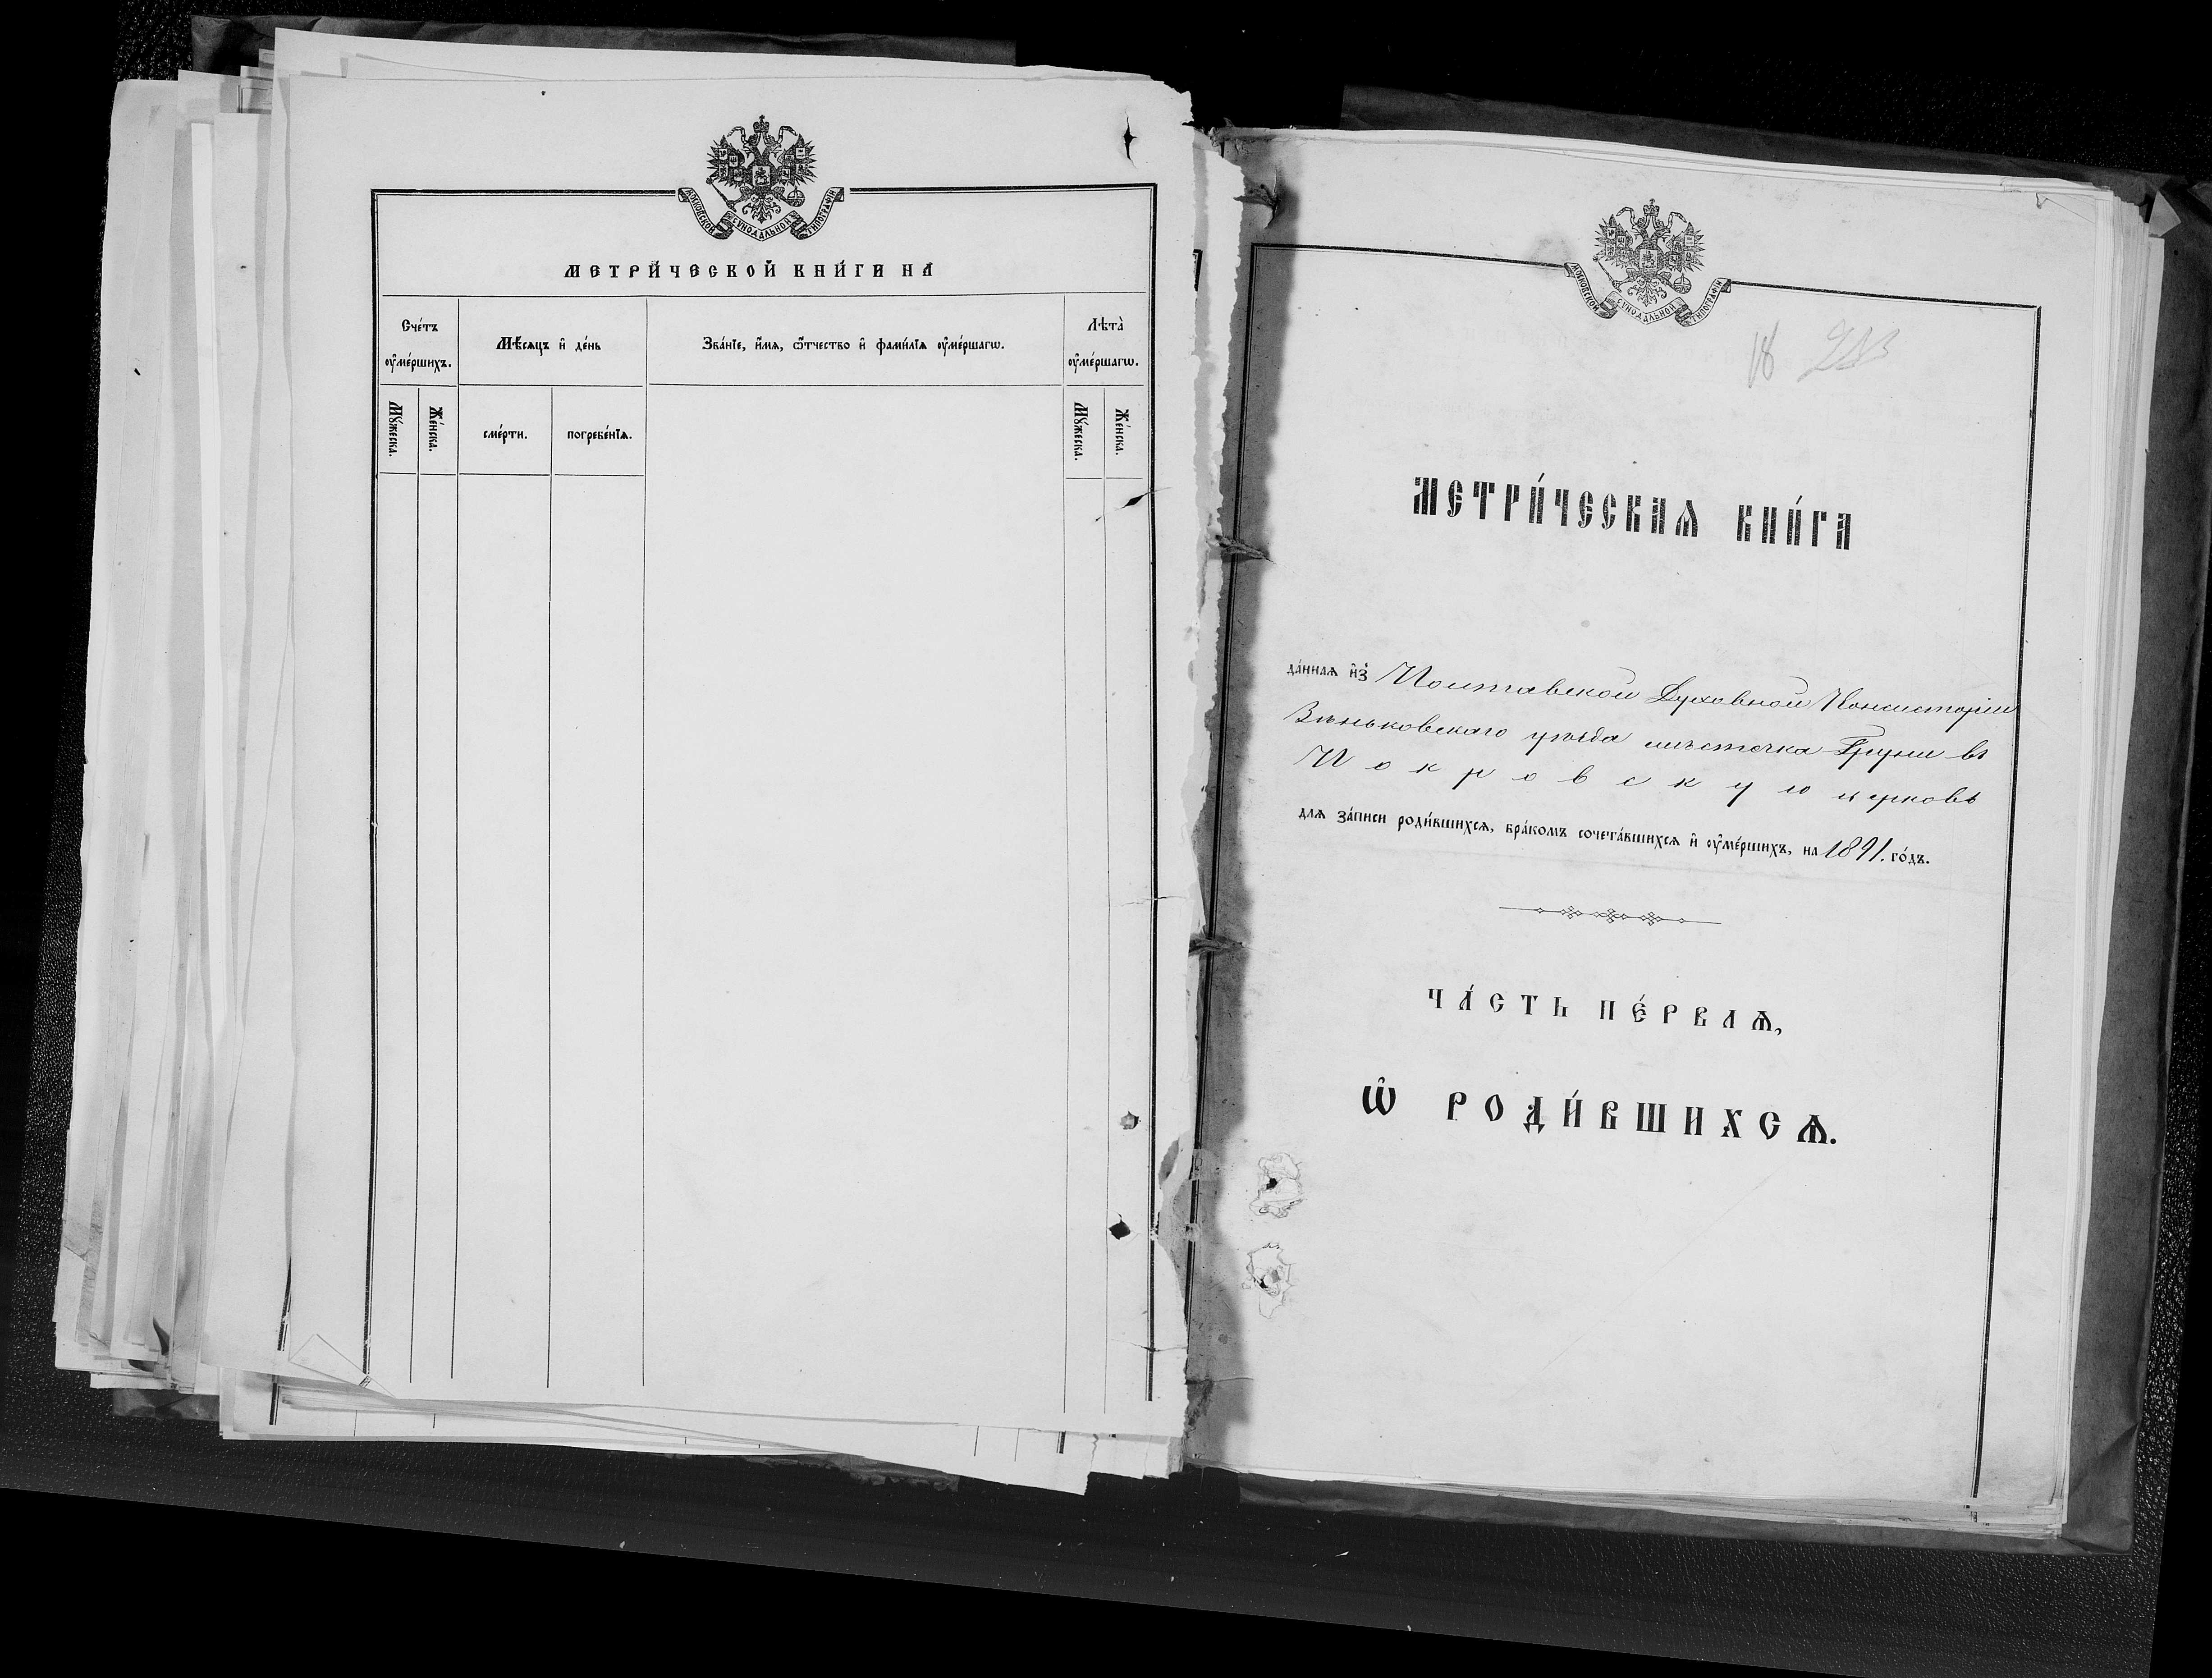 МОСКОВСКОЙ СѴНОДАЛЬНОЙ ТИПОГРАФІИ
МЕТРИ́ЧЕСКОЙ КНИ́ГИ НА
Сче́тъ оу҆ме́ршихъ.
Мѣ́сяцъ и҆ де́нь
Зва́нїе, и҆́мѧ, ѻ҆́тчество и҆ фами́лїѧ оу҆ме́ршагѡ.
Лѣ́та̀ оу҆ме́ршагѡ.
Мꙋ́жеска.
Же́нска.
сме́рти.
погребе́нїѧ.
Мꙋ́жеска.
Же́нска.
МОСКОВСКОЙ СѴНОДАЛЬНОЙ ТИПОГРАФІИ
18
МЕТРИ́ЧЕСКАѦ КНИ́ГА
да́ннаѧ и҆з̾ Полтавской Духовной Консисторіи
Зѣньковскаго уѣзда мѣстечка Груни въ
Покровскую церковь
длѧ за́писи роди́вшихсѧ, бра́комъ сочета́вшихсѧ и҆ оу҆ме́ршихъ, на 1891. го́дъ.
ЧА́СТЬ ПЕ́РВАѦ,
Ѡ҆ РОДИ́ВШИХСѦ.